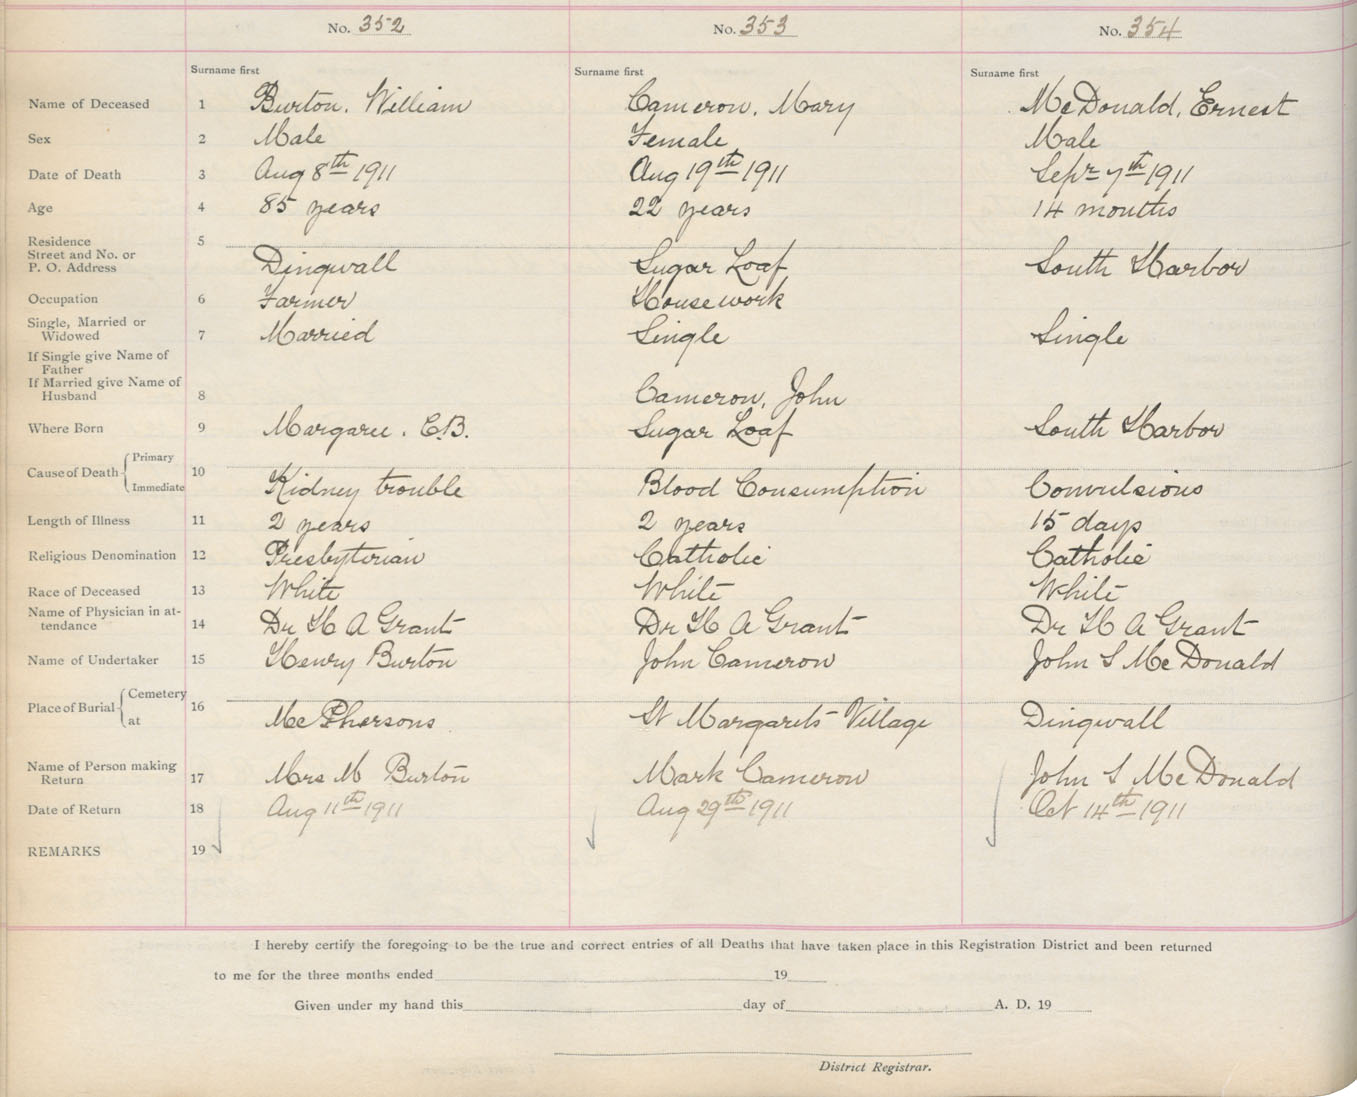 No. 352 No. 353 No. 354
Surname first Surname first Surname first
Name of Deceased 1 Burton, William Cameron, Mary McDonald, Ernest
Sex 2 Male Female Male
Date of Death 3 Aug 8th 1911 Aug 19th 1911 Sepr 7th 1911
Age 4 85 years 22 years 14 months
Residence 5
Street and No. or
P. O. Address Dingwall Sugar Loaf South Harbor
Occupation 6 Farmer Housework
Single, Married or
Widowed 7 Married Single Single
If Single give Name of
Father
If Married give Name of
Husband 8 Cameron, John
Where Born 9 Margaree. C.B. Sugar Loaf South Harbor
Cause of Death Primary 10
Immediate Kidney trouble Blood Consumption Convulsions
Length of Illness 11 2 years 2 years 15 days
Religious Denomination 12 Presbyterian Catholic Catholic
Race of Deceased 13 White White White
Name of Physician in at-
tendance 14 Dr H A Grant Dr H A Grant Dr H A Grant
Name of Undertaker 15 Henry Burton John Cameron John S McDonald
Place of Burial Cemetery 16
at McPhersons St Margarets Village Dingwall
Name of Person making
Return 17 Mrs M Burton Mark Cameron John S McDonald
Date of Return 18 Aug 11th 1911 Aug 29th 1911 Oct 14th 1911
REMARKS 19
I hereby certify the foregoing to be the true and correct entries of all Deaths that have taken place in this Registration District and been returned
to me for the three months ended 19
Given under my hand this day of A. D. 19
District Registrar.